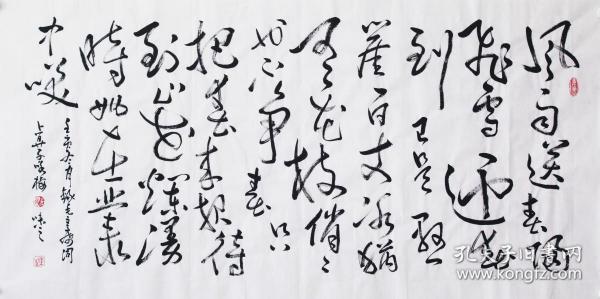 风雨送春归
飞雪迎春
到已是悬
崖百丈冰犹
有花枝俏〻
也不争春只
把春来报待
到山花烂漫
時她在丛
中笑
壬寅冬月録毛主席词
卜算子咏梅
孔夫子旧书网
www.kongfz.com